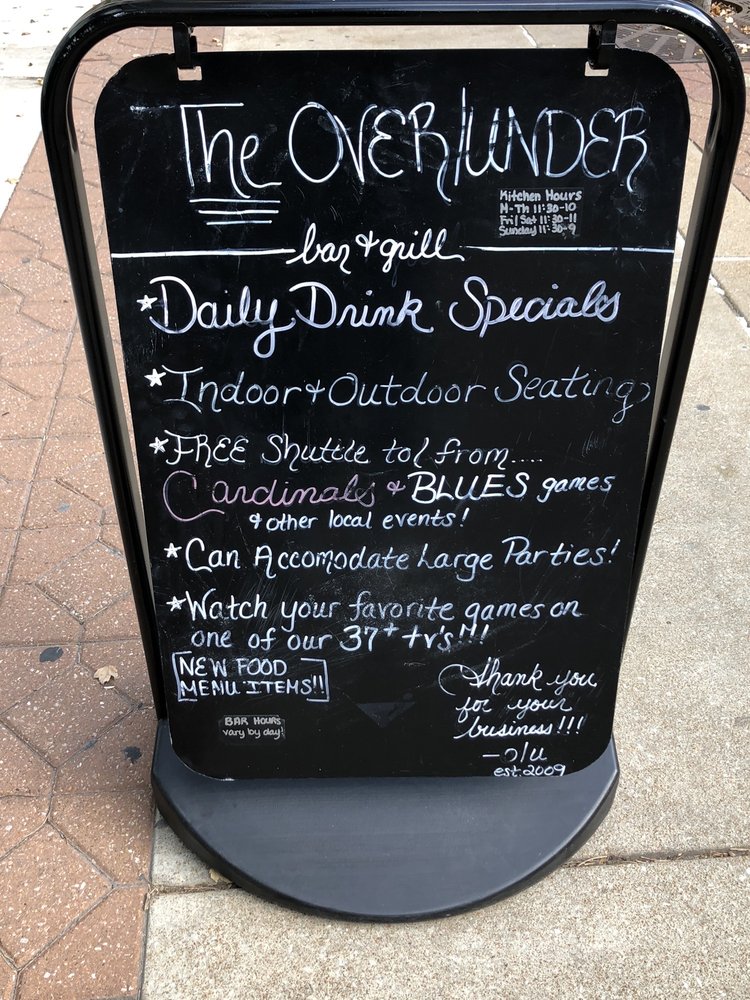 The OVER/UNDER
Kitchen Hours
M-Th 11:30-10
Fri/Sat 11:30-11
Sunday 11:30-9
bar + grill
* Daily Drink Specials
* Indoor + Outdoor Seating
* FREE Shuttle to/from....
Cardinals + BLUES games
+ other local events!
* Can Accomodate Large Parties!
* Watch your favorite games on
one of our 37+ tv's!!!
NEW FOOD
MENU ITEMS!!
BAR HOURS
vary by day!
Thank you
for your
business!!!
- o/u
est. 2009